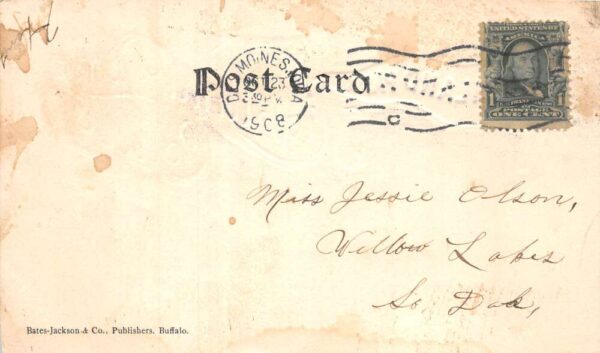 Post Card
DES MOINES, IA
23
3 30 P M
1908
UNITED STATES OF
AMERICA
1 1
POSTAGE
ONE CENT
Miss Jessie Olson,
Willow Lakes
So. Dak,
Bates-Jackson & Co., Publishers, Buffalo.